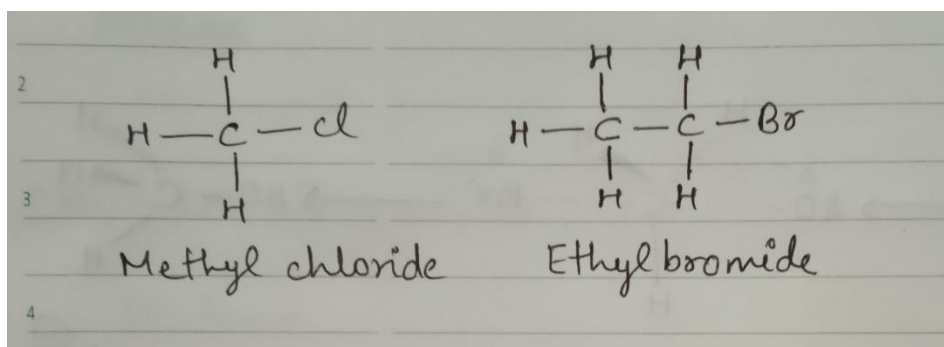 2
H H H
H — C — Cl H — C — C — Br
H H H
3
Methyl chloride Ethyl bromide
4